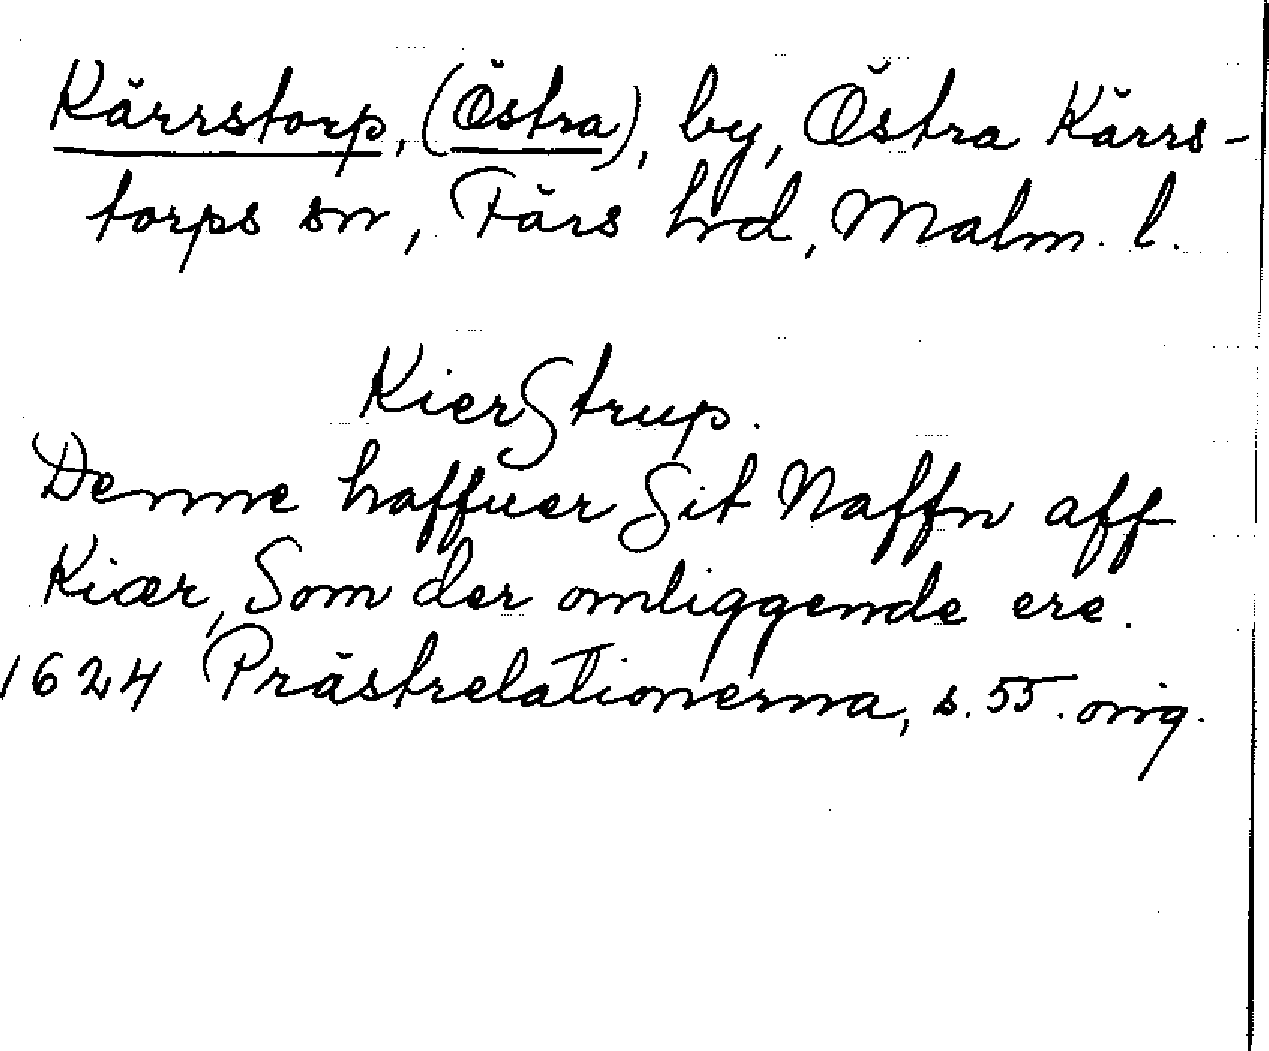 Kärrstorp, (Östra), by, Östra Kärrs-
torps sn, Färs hd, Malm. l.
KierStrup.
Denne haffuer Sit Naffn aff
Kiær, Som der omliggende ere.
1624 Prästrelationerna, s. 55. orig.